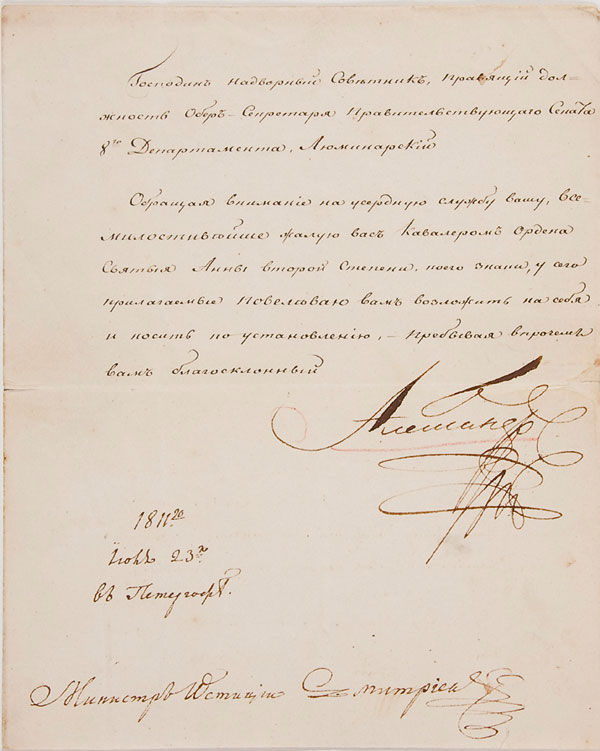 Господинъ надворный Совѣтникъ, правящій дол=
жность Оберъ-Секретаря Правительствующаго Сената
8го Департамента, Люминарскій
Обращая вниманіе на усердную службу вашу, все=
милостивѣйше жалую васъ Кавалеромъ Ордена
Святыя Анны второй Степени, коего знаки, у сего
прилагаемые повелѣваю вамъ возложить на себя
и носить по установленію, – пребывая впрочемъ
вамъ благосклонный
Александръ
1811го
23го
въ Петергофѣ.
Министръ Юстиціи Дмитріевъ